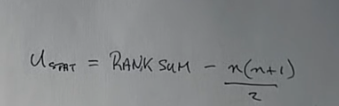 U_STAT = RANK SUM - n(n+1)/2